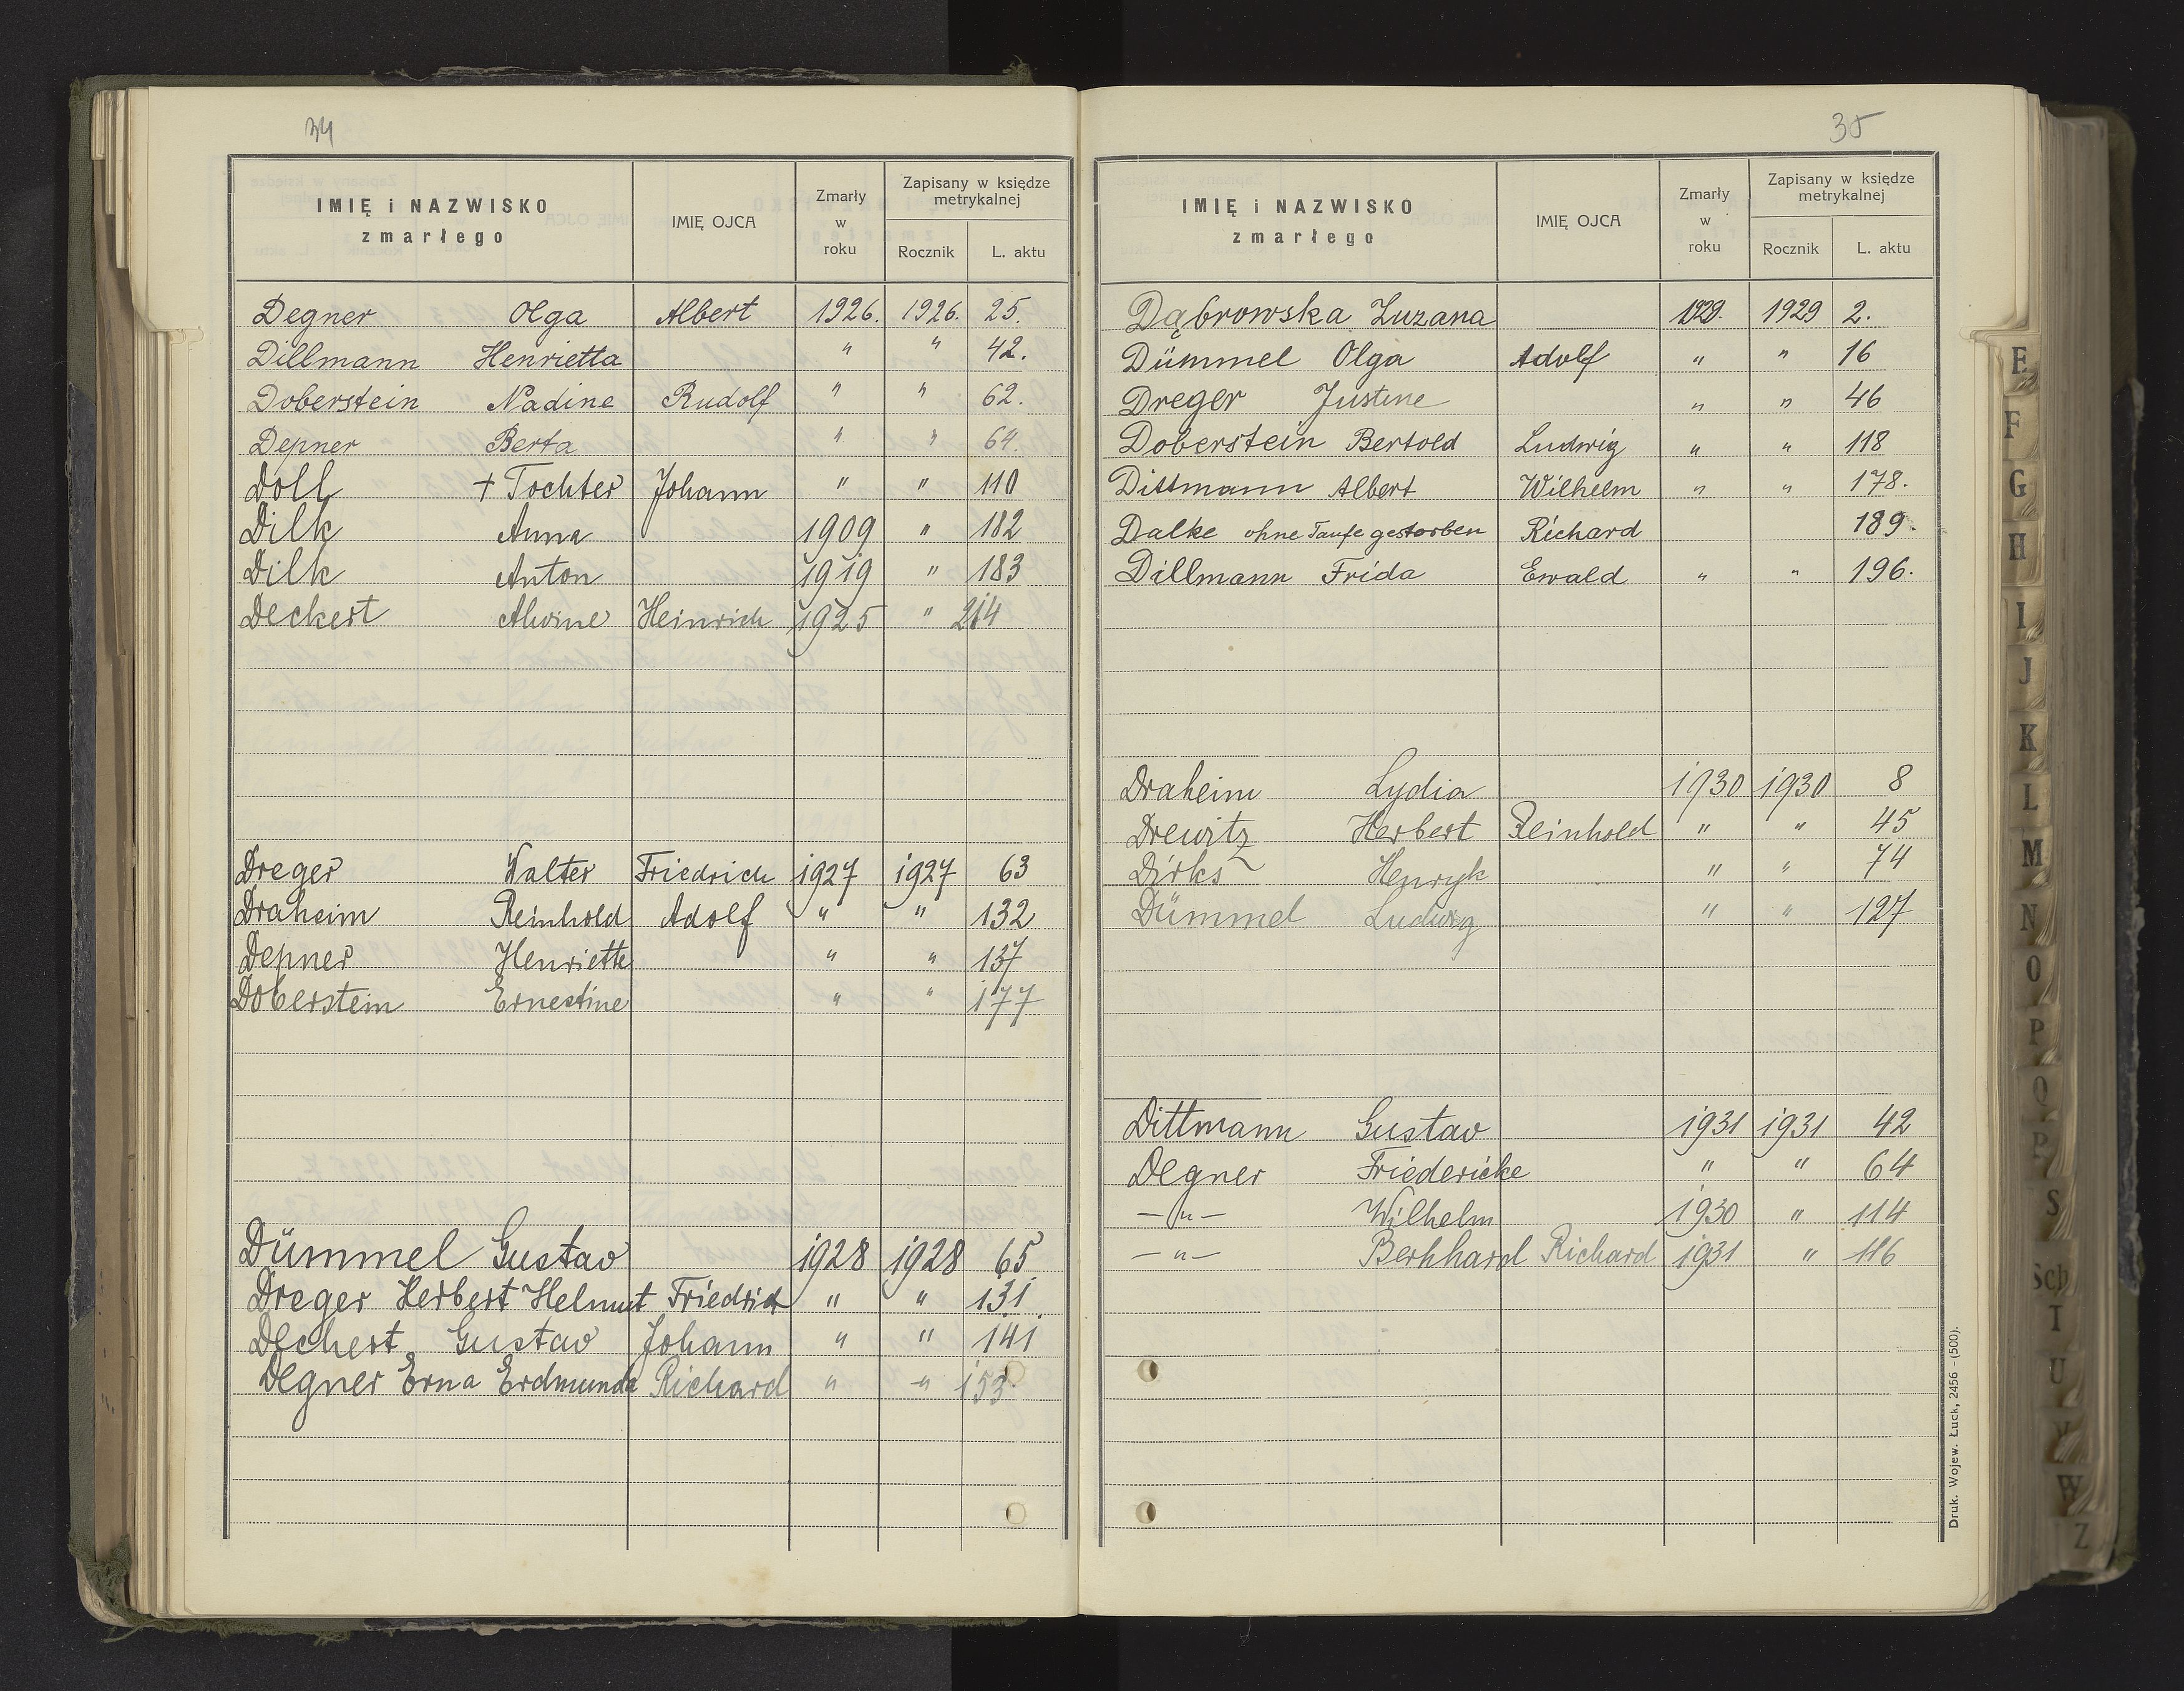 34
IMIĘ i NAZWISKO zmarłego IMIĘ OJCA Zmarły w roku Zapisany w księdze metrykalnej Rocznik L. aktu
Degner Olga Albert 1926. 1926. 25.
Dillmann Henrietta " " 42.
Doberstein Nadine Rudolf " " 62.
Depner Berta " " 64.
Doll + Tochter Johann " " 110
Dilk Anna 1909 " 182
Dilk Anton 1919 " 183
Deckert Alwine Heinrich 1925 " 214
Dreger Walter Friedrich 1927 1927 63
Draheim Reinhold Adolf " " 132
Depner Henriette " " 137
Doberstein Ernestine " " 177
Dümmel Gustav 1928 1928 65
Dreger Herbert Helmut Friedrich " " 131
Dechert Gustav Johann " " 141
Degner Erna Erdmunda Richard " " 153.
35
IMIĘ i NAZWISKO zmarłego IMIĘ OJCA Zmarły w roku Zapisany w księdze metrykalnej Rocznik L. aktu
Dąbrowska Zuzana — 1929. 1929 2.
Dümmel Olga Adolf " " 16
Dreger Justine " " 46
Doberstein Bertold Ludwig " " 118
Dittmann Albert Wilhelm " " 178.
Dalke ohne Taufe gestorben Richard 189.
Dillmann Frida Ewald " " 196.
Draheim Lydia 1930 1930 8
Drewitz Herbert Reinhold " " 45
Dirks Henryk " " 74
Dümmel Ludwig " " 127
Dittmann Gustav 1931 1931 42
Degner Friedericke " " 64
—"— Wilhelm 1930 " 114
—"— Berhhard Richard 1931 " 116
Druk. Wojew. Łuck, 2456 - (500).
E
F
G
H
I
J
K
L
M
N
O
P
Q
R
S
Sch
T
U
V
W
Z